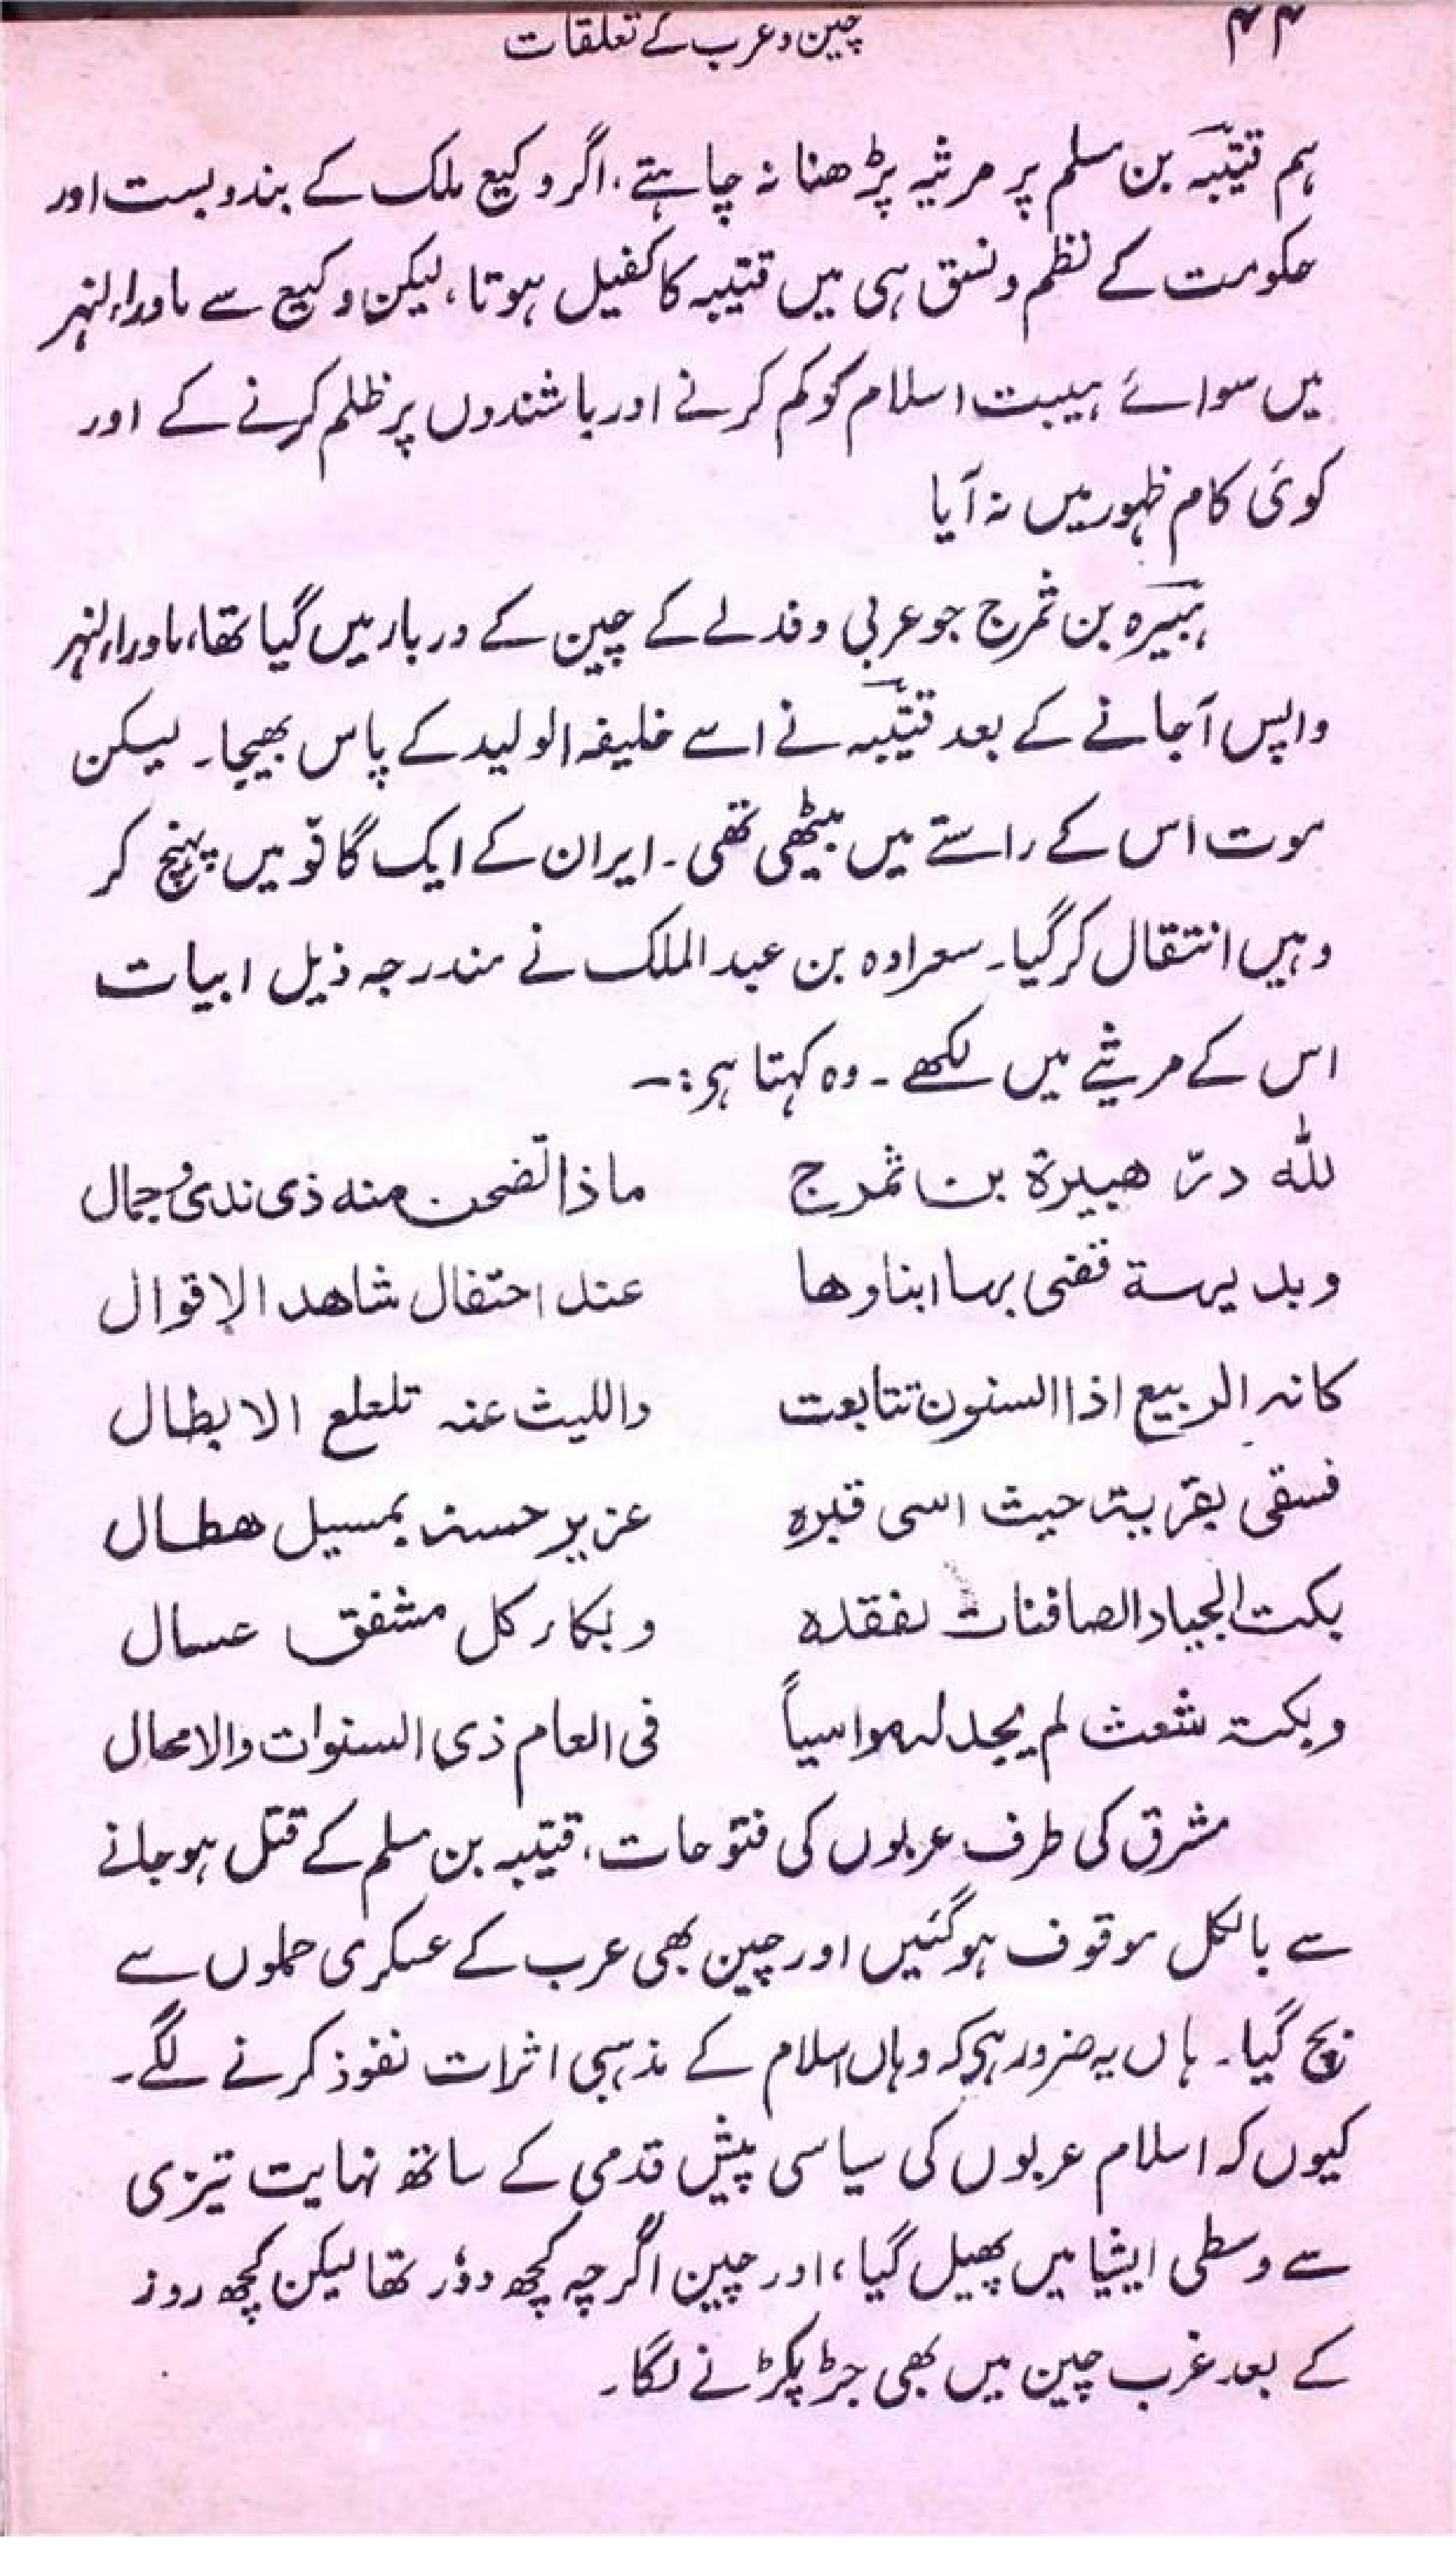 ۴۴ چین و عرب کے تعلقات
ہم قتیبہ بن مسلم پر مرثیہ پڑھنا نہ چاہتے، اگر وکیع ملک کے بندوبست اور
حکومت کے نظم و نسق ہی میں قتیبہ کا کفیل ہوتا، لیکن وکیع سے ماوراء النہر
میں سوائے ہیبت اسلام کو کم کرنے اور باشندوں پر ظلم کرنے کے اور
کوئی کام ظہور میں نہ آیا
ہبیرہ بن ثمرج جو عربی وفد لے کے چین کے دربار میں گیا تھا، ماوراء النہر
واپس آ جانے کے بعد قتیبہ نے اسے خلیفہ الولید کے پاس بھیجا۔ لیکن
موت اس کے راستے میں بیٹھی تھی۔ ایران کے ایک گاؤں میں پہنچ کر
وہیں انتقال کر گیا۔ سعراوہ بن عبد الملک نے مندرجہ ذیل ابیات
اس کے مرثیے میں لکھے۔ وہ کہتا ہی:۔
للہ درّ ھبیرة بن ثمرج ماذا تضحن منه ذی ندیً وجمال
وبدیہة فقضی بہا ابناوھا عند احتفال شاھد الاقوال
کانہ الربیع اذا السنون تتابعت واللیث عنہ تلعلع الابطال
فسقی بقریة حیث اسی قبرہ عزیر حسنہ بمسیل ھطال
بکت الجیاد الصافنات لفقدہ وبکار کل مشفق عسال
وبکتہ شعث لم یجد لہ مواسیاً فی العام ذی السنوات والامحال
مشرق کی طرف عربوں کی فتوحات، قتیبہ بن مسلم کے قتل ہو جانے
سے بالکل موقوف ہو گئیں اور چین بھی عرب کے عسکری حملوں سے
بچ گیا۔ ہاں یہ ضرور ہی کہ وہاں اسلام کے مذہبی اثرات نفوذ کرنے لگے۔
کیوں کہ اسلام عربوں کی سیاسی پیش قدمی کے ساتھ نہایت تیزی
سے وسطی ایشیا میں پھیل گیا، اور چین اگرچہ کچھ دوٗر تھا لیکن کچھ روز
کے بعد غرب چین میں بھی جڑ پکڑنے لگا۔